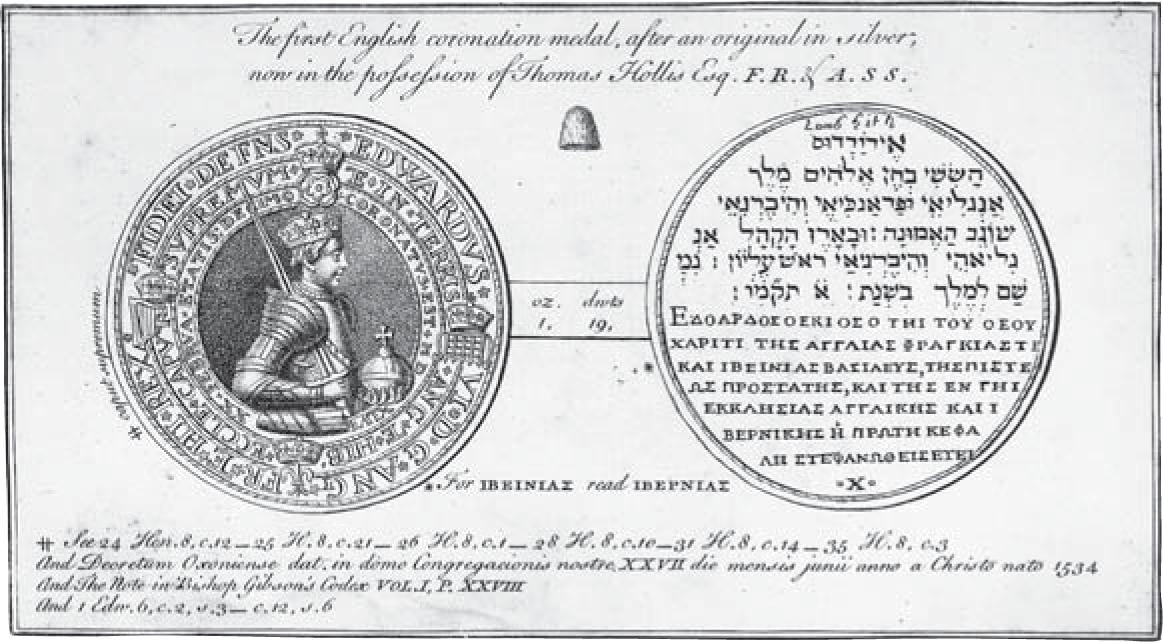 The first English coronation medal, after an original in silver,
now in the possession of Thomas Hollis Esq. F. R. & A. S S.
EDWARDUS · VI · D · G · ANG · FR · E · HI · REX · FIDEI · DEFNS ·
E · IN · TERRIS · ANG · E · HIB · ECCLE · CAPUT · SUPREMUM
CORONATVS · EST · M · D · XX · FEBRVA · ETATIS · DECIMO
# caput supremum.
oz. dwts
1, 19,
Lamb
השׁשׁי בחן אלהים מלך
אנגליאי ופראנכיאי והיברניאי
האמונה: ובארץ הקהל אנ
גליאהי והיברניאי ראש עליון :
שם למלך בשנת: א
ΕΔΟΑΡΔΟΣ Ο ΕΚΤΟΣ Ο ΤΗΙ ΤΟΥ ΘΕΟΥ
ΧΑΡΙΤΙ ΤΗΣ ΑΓΓΛΙΑΣ ΦΡΑΓΚΙΑΣ ΤΕ
* ΚΑΙ ΙΒΕΙΝΙΑΣ ΒΑΣΙΛΕΥΣ, ΤΗΣ ΠΙΣΤΕ
ΩΣ ΠΡΟΣΤΑΤΗΣ, ΚΑΙ ΤΗΣ ΕΝ ΓΗΙ
ΕΚΚΛΗΣΙΑΣ ΑΓΓΛΙΚΗΣ ΚΑΙ Ι
ΒΕΡΝΙΚΗΣ Η ΠΡΩΤΗ ΚΕΦΑ
ΛΗ ΣΤΕΦΑΝΩΘΕΙΣ ΕΤΕΙ
·X·
* For ΙΒΕΙΝΙΑΣ read ΙΒΕΡΝΙΑΣ
# See 24 Hen. 8, c. 12 — 25 H. 8, c. 21 — 26 H. 8, c. 1 — 28 H. 8, c. 10 — 31 H. 8, c. 14 — 35 H. 8, c. 3
And Decretum Oxoniense dat. in domo Congregacionis nostre, XXVII die mensis junii anno a Christo nato 1534
And The Note in Bishop Gibson's Codex VOL. I, P. XXVIII
And 1 Edw. 6, c. 2, s. 3 — c. 12, s. 6